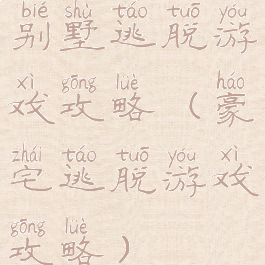 bié shù táo tuō yóu
别墅逃脱游
xì gōng lüè háo
戏攻略（豪
zhái táo tuō yóu xì
宅逃脱游戏
gōng lüè
攻略）